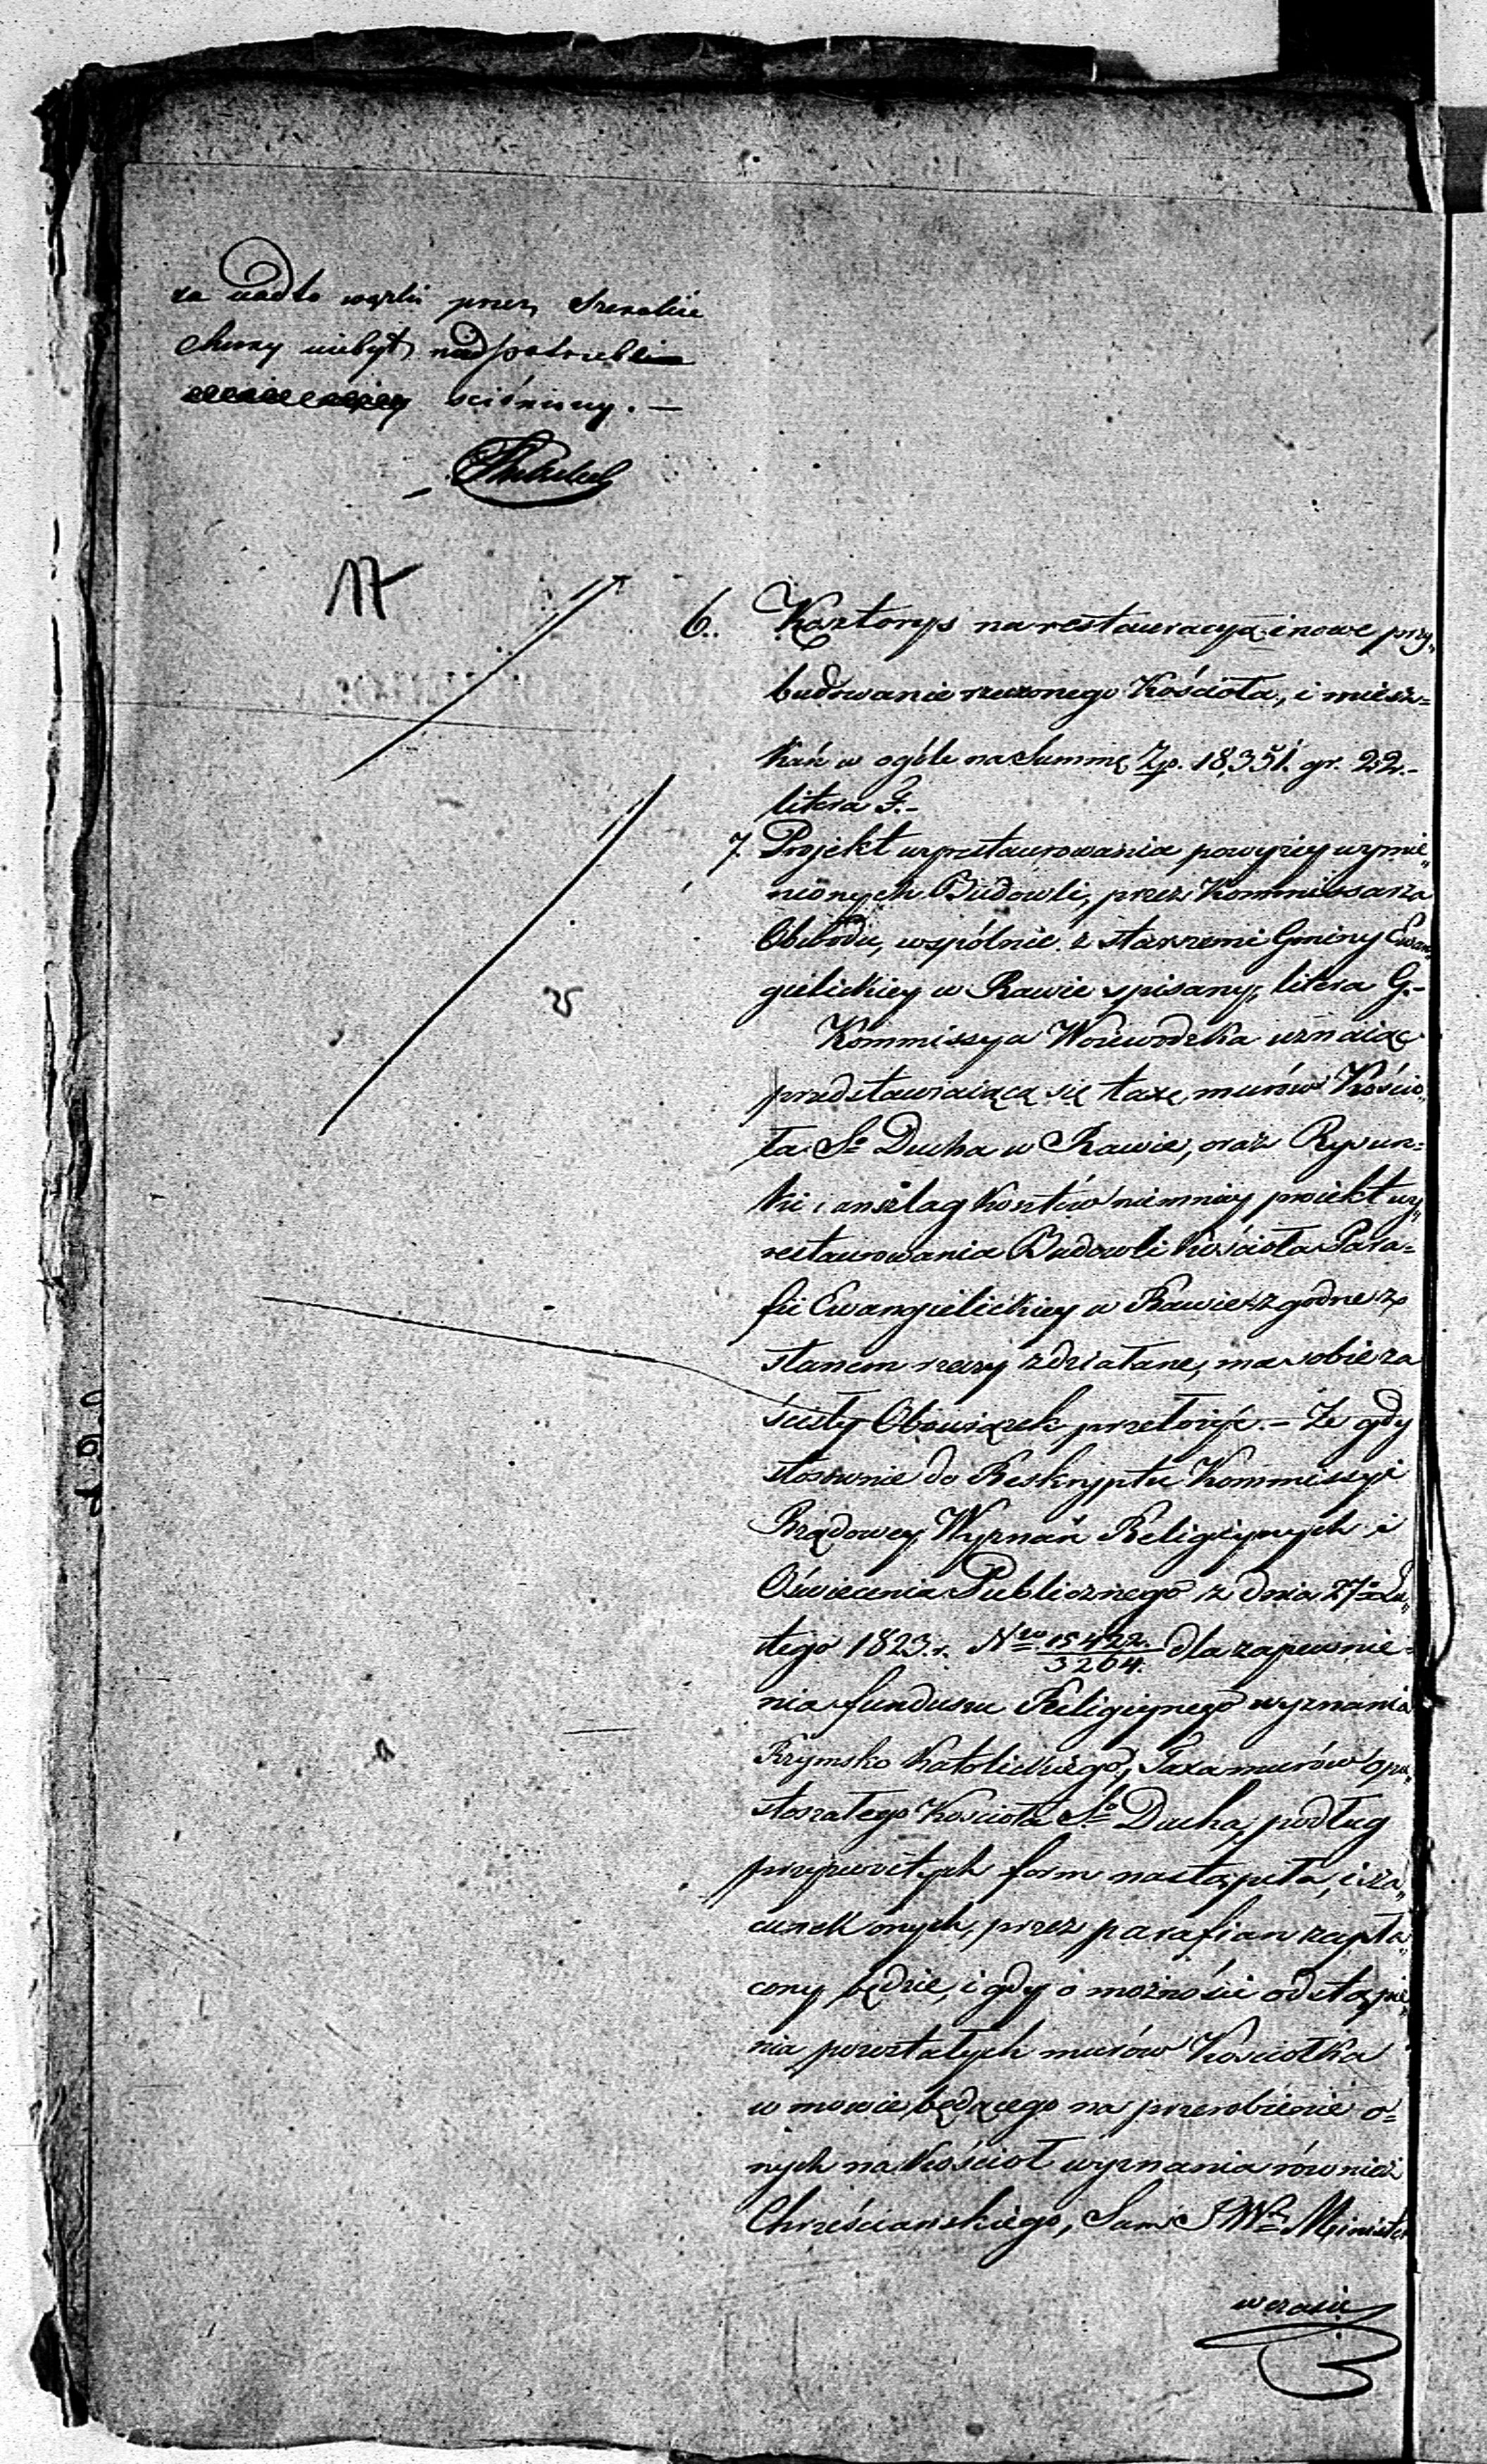 za nadto wązki przez szerokie
chury niebył nad potrzebę
ściśniony. —
17
6. Kosztorys na restauracyą i nowe przy„
budowanie rzeczonego Kościoła, i miesz=
kań w ogóle na Summę Zp. 18,351. gr. 22.-
litera F.-
7. Projekt wyrestaurowania powyżey wymie„
nionych Budowli, przez Kommissarza
Obwodu, wspólnie z starszemi Gminy Ewan„
gielickiey w Rawie spisany, litera G.-
Kommissya Woiewodzka uznaiąc
przedstawiaiącą się taxę murów Kościo„
ła Sgo Ducha w Rawie, oraz Rysun=
ki i anszlag kosztów niemniey proiekt wy„
restaurowania Budowli Kościoła Para=
fii Ewangielickiey w Rawie zgodnie z
stanem rzeczy zdziałane, ma sobie za
ścisły Obowiązek przełożyć.- Że gdy
stosownie do Reskryptu Kommissyi
Rządowey Wyznań Religiynych i
Oświecenia Publicznego z dnia 27 Lu„
tego 1823.r. Nro 15422./3264. dla zapewnie=
nia funduszu Religiynego wyznania
Rzymsko Katolickiego, Taxa murów opu„
stoszałego Kościoła Sgo Ducha, podług
przyzwoitych form nastąpiła, i sza„
cunek onych, przez parafian zapła„
cony będzie, i gdy o możności odstąpie„
nia pozostałych murów Kościołka
w mowie będącego na przerobienie o=
nych na Kościoł wyznania również
Chrześciańskiego, Sam JWy Minister
w czasie